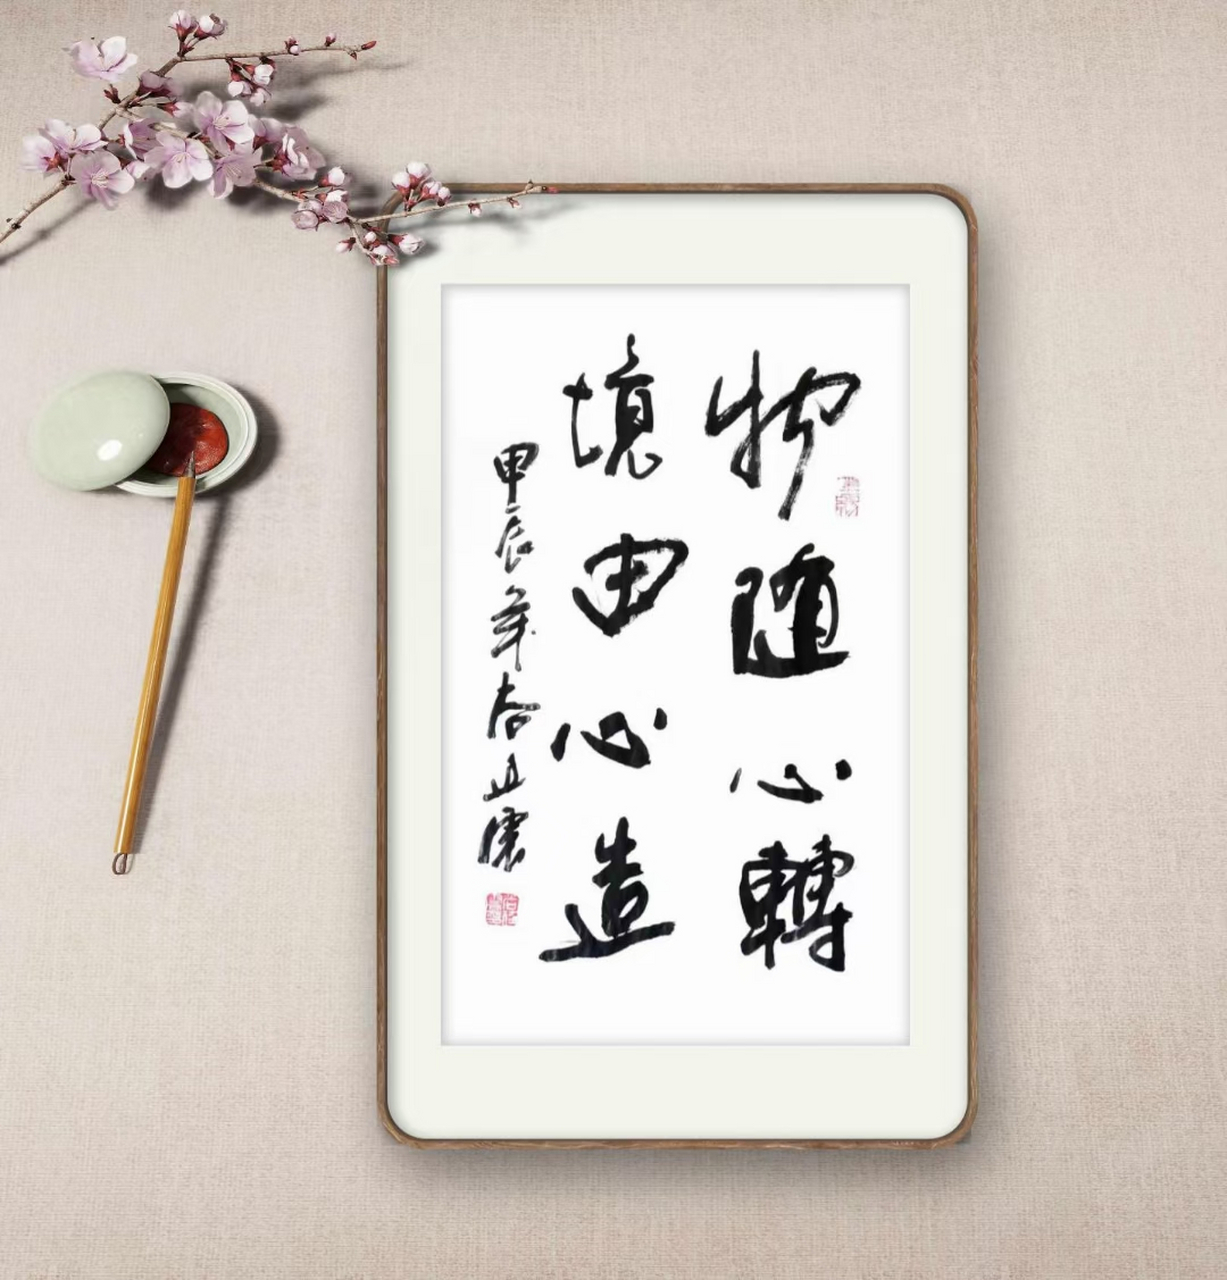 物随心轉
境由心造
甲辰年